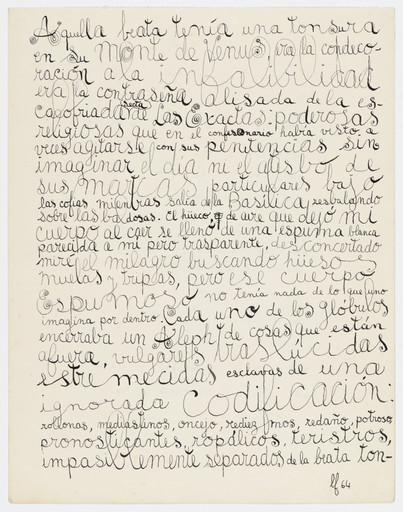 Aquella beata tenía una tonsura
en su Monte de Venus, era la condeco-
ración a la infalibilidad
era la contraseña alisada de la es-
calofriada secta de las Exactas: poderosas
religiosas que en el confesionario había visto a
veces agitarse con sus penitencias sin
imaginar el día ni el atisbo de
sus marcas particulares bajo
las cofias mientras salía de la Basílica resbalando
sobre las baldosas. El hueco de aire que dejó mi
cuerpo al caer se llenó de una espuma blanca
parecida a mi pero trasparente, desconcertado
miré el milagro buscando hueso
muelas y tripas, pero ese cuerpo
Espumoso no tenía nada de lo que uno
imagina por dentro. Cada uno de los glóbulos
encerraba un Aleph de cosas que están
afuera, vulgares traslúcidas
estremecidas esclavas de una
ignorada codificación:
rollonas, mediastinos, oncejo, rediezmos, redaño, potroso
pronosticantes, ropálicos, teristros,
impasiblemente separados de la beata ton-
lf 64